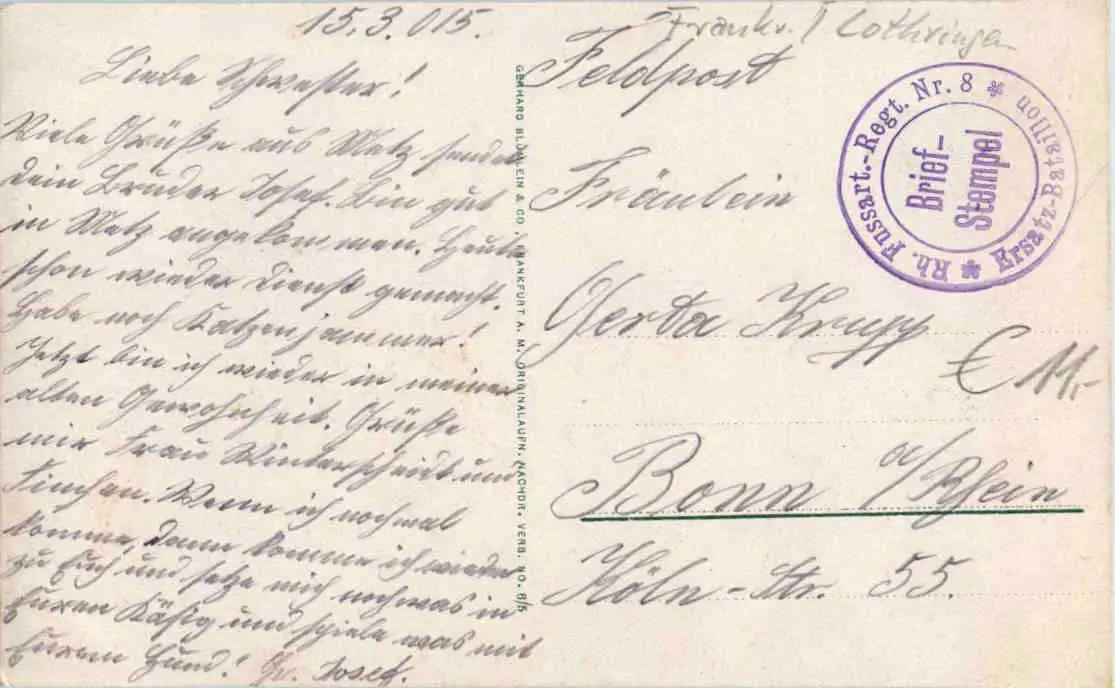 15.3.015.
Liebe Schwester!
Viele Grüße aus Metz sendet
Dein Bruder Josef. Bin gut
in Metz angekommen. Heute
schon wieder Dienst gemacht.
Habe noch Katzenjammer!
Jetzt bin ich wieder in meiner
alten Gewohnheit. Grüße
mir Frau Winterscheidt und
Finchen. Wenn ich nochmal
komme, dann komme ich wieder
zu Euch und setze mich noch was in
Euren Käfig und spiele was mit
Eurem Hund! Gr. Josef.
GERHARD BLÜMLEIN & CO., FRANKFURT A. M. ORIGINALAUFN. NACHDR. VERB. NO. 6/5
Frankr. / Lothringen
Feldpost
Rh. Fussart.-Regt. Nr. 8
Ersatz-Bataillon
Brief-
Stempel
Fräulein
Gerda Krupp
€ 11,-
Bonn a/Rhein
Köln-Str. 55.